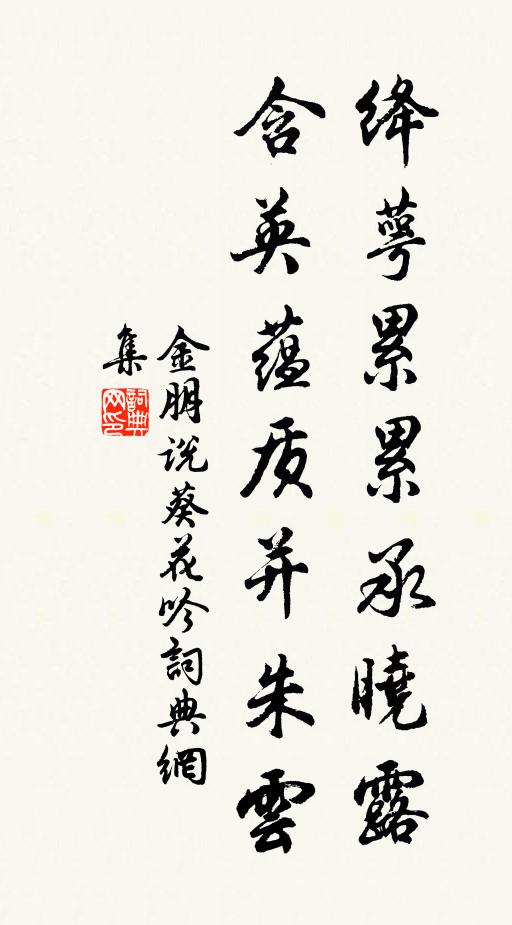 绛萼累累承曉露
含英蕴质并朱雲
金朋说葵花吟詞典網
集
詞典
网印